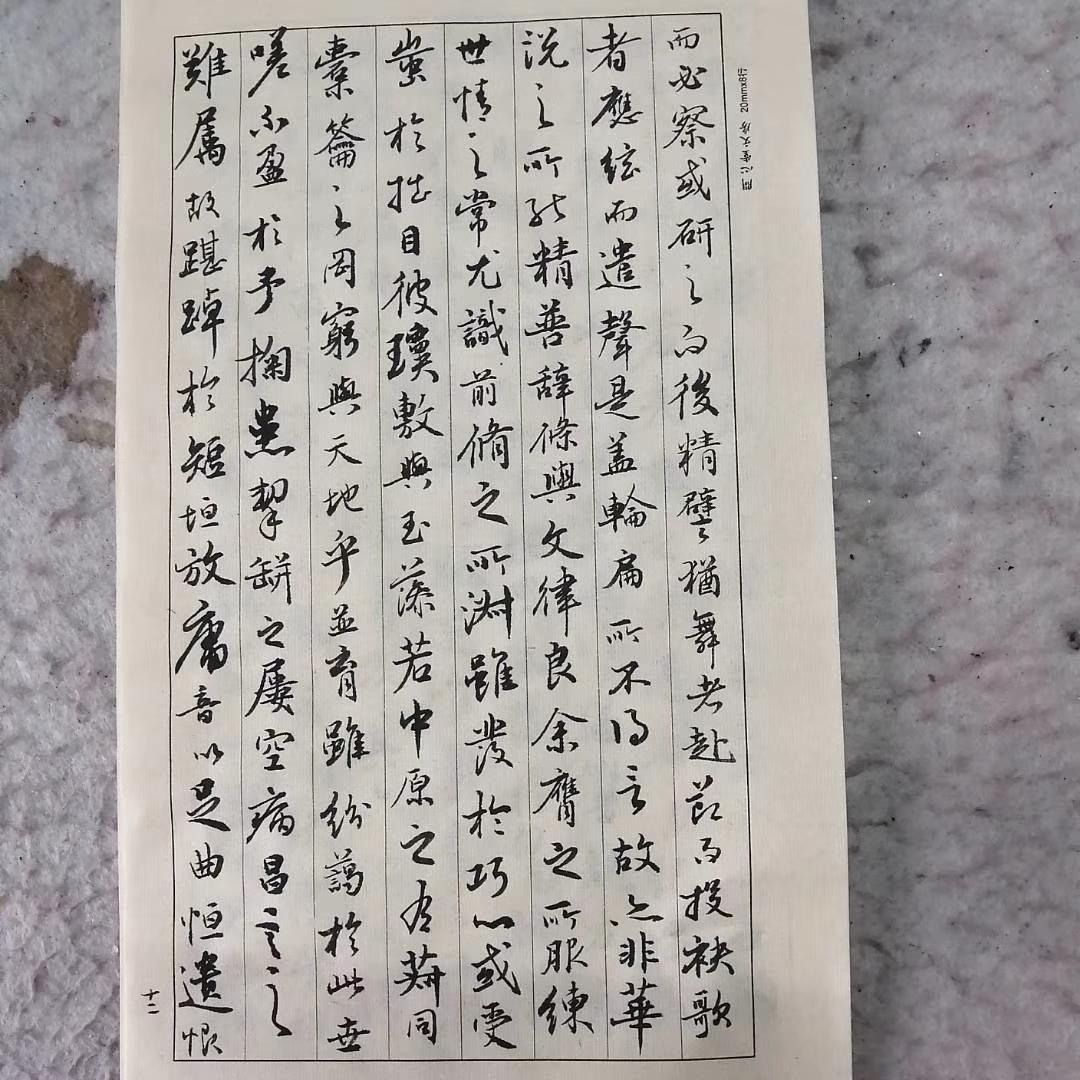 而必察或研之而後精譬猶舞者赴節而投袂歌
者應絃而遣聲是盖輪扁所不得言故亦非華
説之所能精普辭條與文律良余膺之所服練
世情之常尤識前脩之所淑雖發於巧心或受
蚩於拙目彼瓊敷與玉藻若中原之有菽同
橐籥之罔窮與天地乎並育雖紛藹於此世
嗟不盈於予掬患挈缾之屢空病昌言之
難属故踸踔於短垣放庸音以足曲恒遺恨
十二
20mmx8行